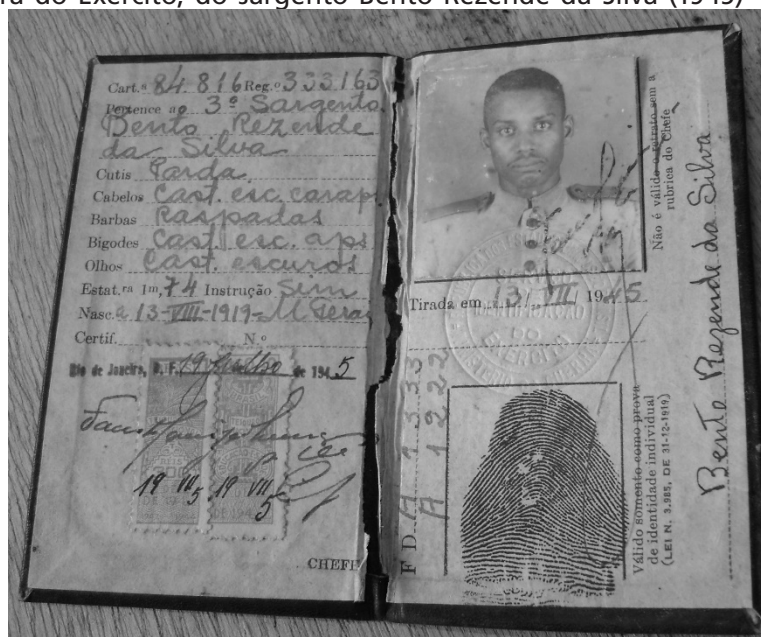 ra do Exército, do sargento Bento Rezende da Silva (1945)
Cart.ª 84.816 Reg.º 333163
Pertence ao 3º Sargento
Bento Rezende
da Silva
Cutis Parda
Cabelos Cast. esc. carap
Barbas Raspadas
Bigodes Cast. esc. aps
Olhos Cast. escuros
Estat.ra 1m,74 Instrução Sim
Nasc. a 13-VIII-1919-M Geraes
Certif. N.º
Rio de Janeiro, D. F. 19 Julho de 1945
19 VII 5 19 VII 5
CHEFE
Tirada em 13/ VII/ 1945
IDENTIFICAÇÃO
DO
EXERCITO
Não é válido o retrato sem a
rubrica do Chefe
F D. A 1333
A 1222
Válido somente como prova
de identidade individual
(LEI N. 3.985, DE 31-12-1919)
Bento Rezende da Silva